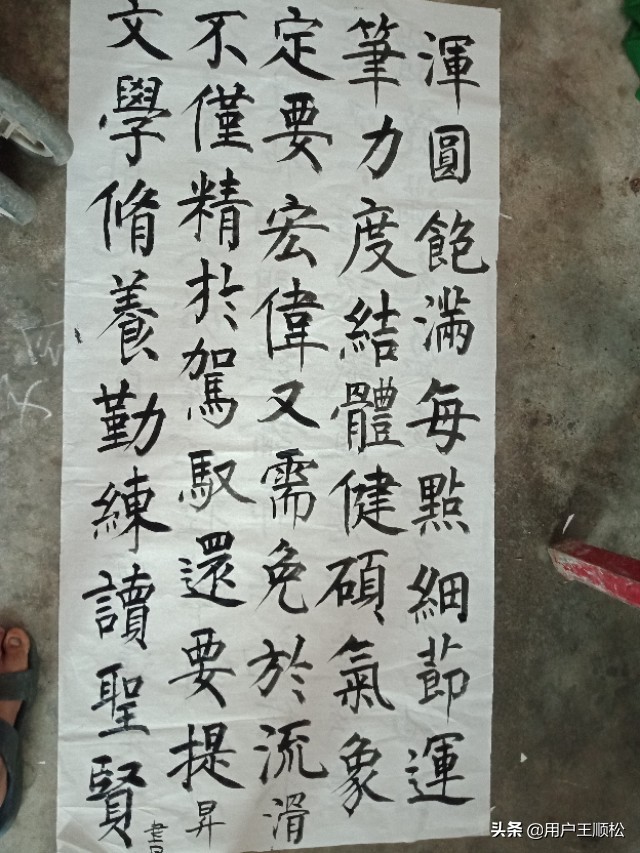 渾圓飽滿每點細節運
筆力度結體健碩氣象
定要宏偉又需免於流滑
不僅精於駕馭還要提昇
文學脩養勤練讀聖賢
書
头条 @用户王顺松